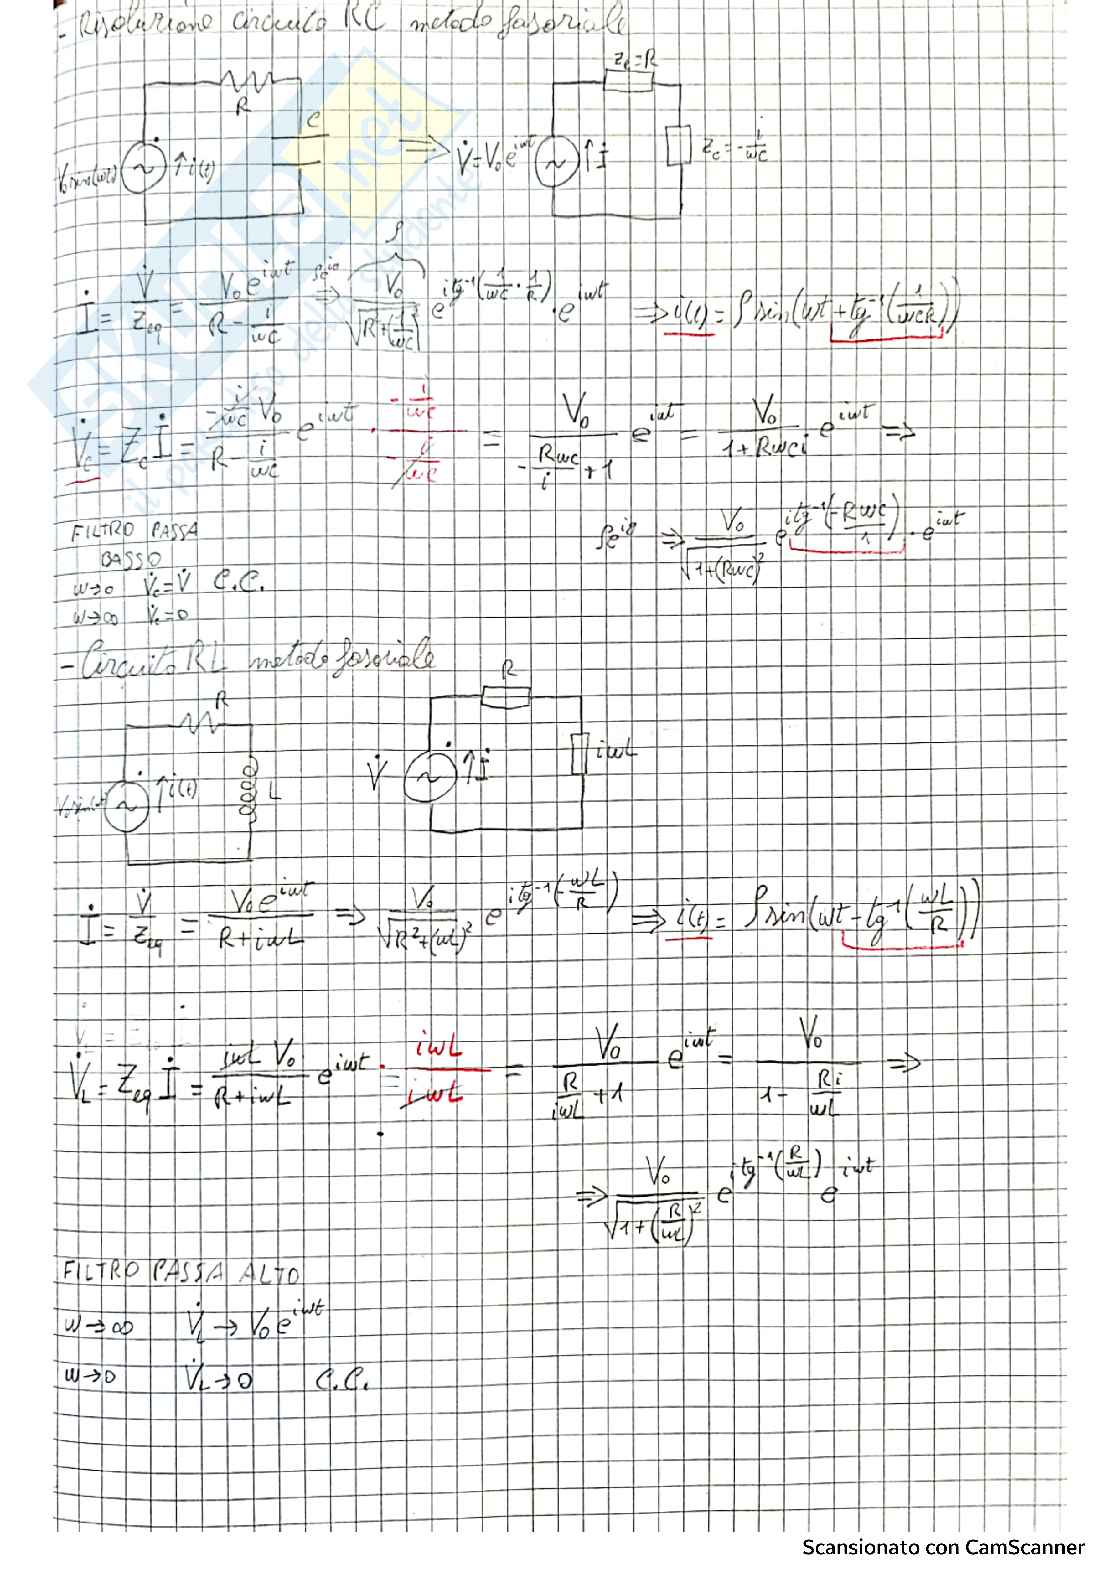 - Risoluzione circuito RC metodo fasoriale
R
C
V₀sin(ωt)
~
↑i(t)
⇒
V̇=V₀e^{iωt}
~
↑İ
Z_R=R
Z_C=-i/(ωC)
İ = V̇/Z_eq = V₀e^{iωt}/(R - i/(ωC)) ρe^{iφ} ⇒ V₀/√(R²+(1/(ωC))²) e^{i tg⁻¹(1/(ωC)·1/R)}·e^{iωt} ⇒ i(t) = ρ sin(ωt + tg⁻¹(1/(ωCR)))
ρ
V̇_C = Z_C İ = (-i/(ωC) V₀)/(R - i/(ωC)) e^{iωt} · (-i/(ωC))/(-i/(ωC)) = V₀/(-RωC/i + 1) e^{iωt} = V₀/(1+RωCi) e^{iωt} ⇒
ρe^{iφ} ⇒ V₀/√(1+(RωC)²) e^{i tg⁻¹(-RωC/1)} · e^{iωt}
FILTRO PASSA
BASSO
ω→0 V̇_C=V̇ C.C.
ω→∞ V̇_C=0
- Circuito RL metodo fasoriale
R
L
V₀sin(ωt)
~
↑i(t)
V̇
~
↑İ
R
iωL
İ = V̇/Z_eq = V₀e^{iωt}/(R+iωL) ⇒ V₀/√(R²+(ωL)²) e^{i tg⁻¹(-ωL/R)} ⇒ i(t) = ρ sin(ωt - tg⁻¹(ωL/R))
V̇_L = Z_eq İ = (iωL V₀)/(R+iωL) e^{iωt} · iωL/iωL = V₀/(R/(iωL) + 1) e^{iωt} = V₀/(1 - Ri/(ωL)) ⇒
⇒ V₀/√(1+(R/(ωL))²) e^{i tg⁻¹(R/(ωL))} e^{iωt}
FILTRO PASSA ALTO
ω→∞ V̇_L → V₀e^{iωt}
ω→0 V̇_L→0 C.C.
SKUOLA.net
il paradiso dello studente
Scansionato con CamScanner